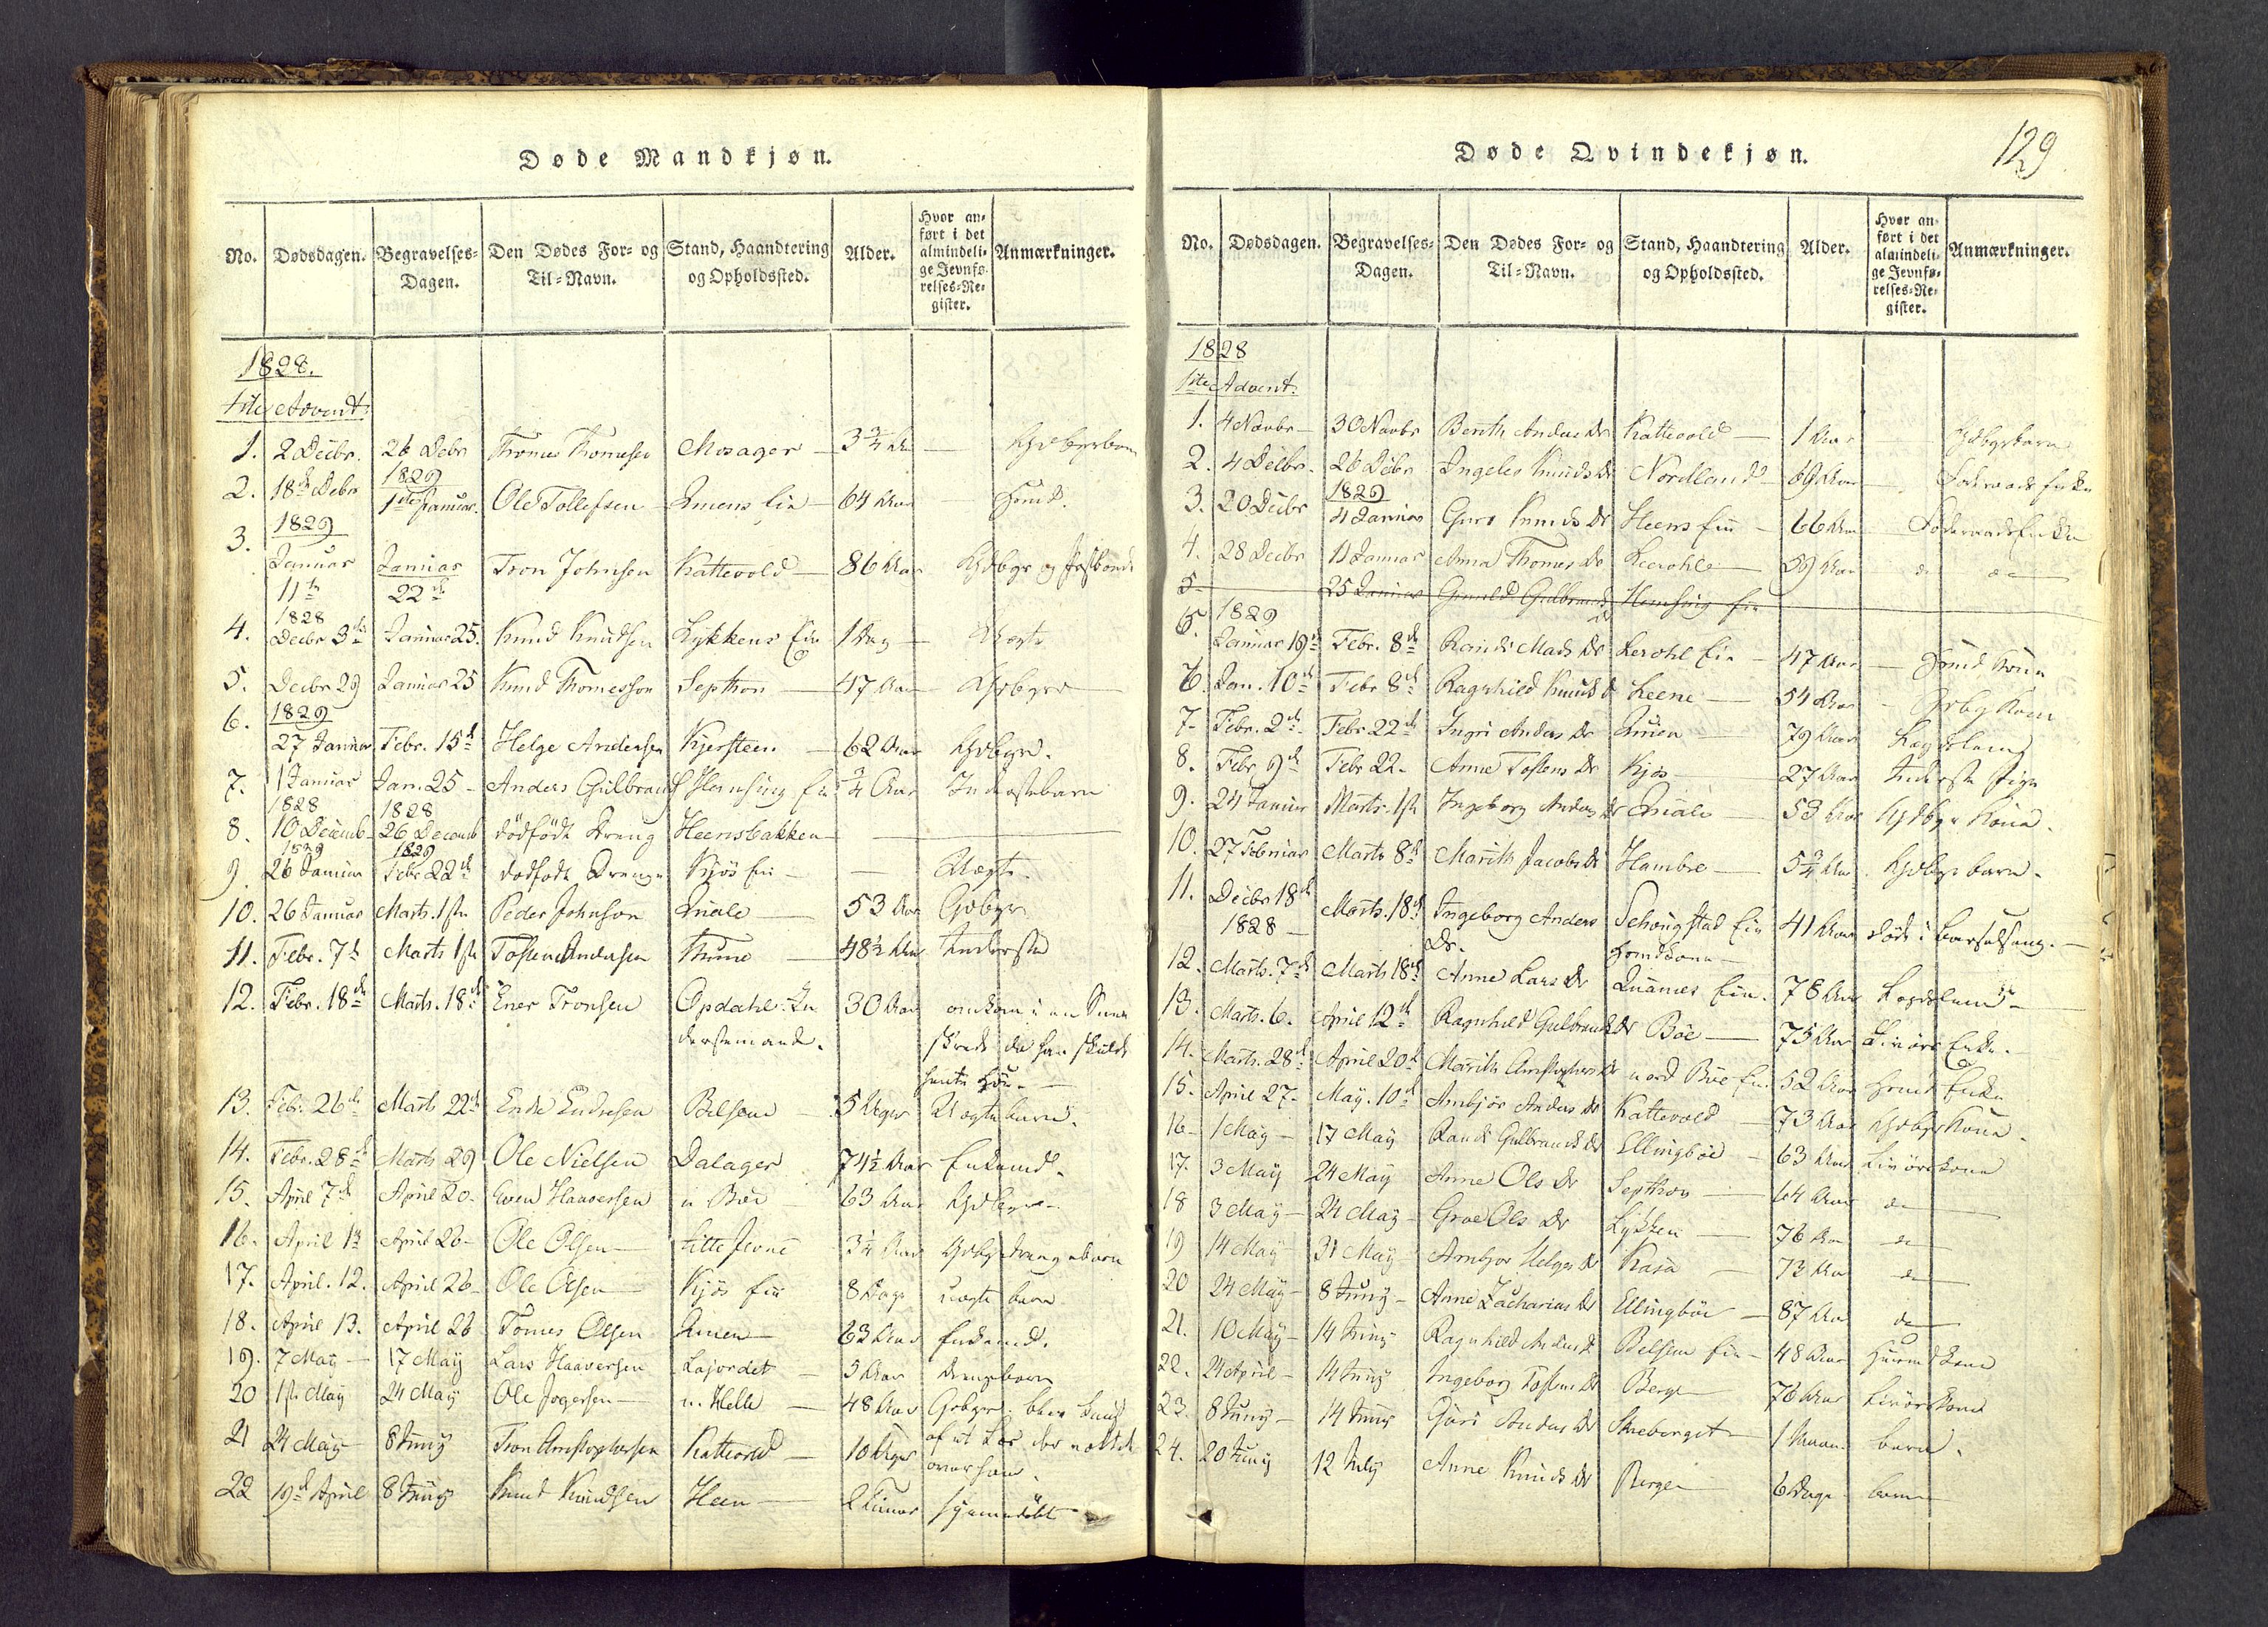 Døde Mandkjøn.
No. Dødsdagen. Begravelses-Dagen. Den Dødes For- og Til-Navn. Stand, Haandtering og Opholdssted. Alder. Hvor anført i det almindelige Jevnførelses-Register. Anmærkninger.
1828.
1ste Advent.
1. 2 Decbr. 26 Debr Thomes Thomesen Mosager 3 3/4 Aar
2. 18de Debr 1829 1ste Januar. Ole Tollefsen 64 Aar
3. 1829 Januar 11te Januar 22de Tron Johnsen Kattevold 86 Aar
4. 1828 Decbr 3die Januar 25. Knud Knudsen Lykkens Eie 1 Dag Uægte
5. Decbr 29 Januar 25 Knud Thomesson Septhon 47 Aar
6. 1829 27 Januar Febr. 15de Helge Andersen Kjersteen 62 Aar
7. 1 Januar Jan. 25 Anders Gulbrands Hemsing Eie 3/4 Aar Inderstebarn
8. 1828 10 Decemb 1828 26 Decemb dödfödt Dreng Heensbakken
9. 1829 26 Januar 1829 Febr 22de dödfödt Dreng Kjös Eie Uægte
10. 26 Januar Marts. 1ste Peder Johnson Quale 53 Aar
11. Febr. 7de Marts 1ste Tosten Andersen Thune 48 1/2 Aar Inderste
12. Febr. 18de Marts. 18de Ener Tronsen Opdahl. In 30 Aar omkom i en Snee
derstemand. skred da han skulde
hente Höe
13. Febr. 26de Marts 22de Endre Endresen Belsem 5 Uger Uægte barn.
14. Febr. 28de Marts 29 Ole Nielsen Dalager 74 1/2 Aar Enkemd.
15. April 7de April 20. Even Haaversen n Böe 63 Aar
16. April 1ste April 26 Ole Olsen Litle Jevne 3 1/4 Aar
17. April. 12. April 26 Ole Olsen Kjös Eie 8 Dage uægte barn
18. April 13. April 26 Tomes Olsen 63 Aar Enkemd.
19. 7 May 17 May Lars Haaversen Lajordet 5 Aar Drengebarn
20 1ste May 24 May Ole Jogersen n. Helle 48 Aar
21 24 May 8 Juny Tron Christophersen Kattevold 10 Uger
over ham.
22 19de April 8 Juny Knud Knudsen Heen 2 Timer hjemmedöbt
Døde Qvindekjøn.
129
No. Dødsdagen. Begravelses-Dagen. Den Dødes For- og Til-Navn. Stand, Haandtering og Opholdssted. Alder. Hvor anført i det almindelige Jevnførelses-Register. Anmærkninger.
1828
1ste Advent.
1. 4 Novbr 30 Novbr Berith Anders Dr Kattevold 1 Aar
2. 4 Decbr. 26 Debr Ingeleo Knuds Dr Nordland 69 Aar
3. 20 Decbr 1829 4 Januar Guro Knuds Dr Heens Eie 66 Aar
4. 28 Decbr 11 Januar Anna Thomes Dr Leerohle 59 Aar
5 25 Januar Gunild Gulbrands Hemsing Eie
5. 1829 Januar 19de Febr. 8de Randi Mads Dr Lerohl Eie 47 Aar
6. Jan. 10de Febr 8de Ragnhild Knuds D Leene 54 Aar
7. Febr. 2den Febr 22de Ingri Anders Dr 79 Aar Lægdslem
8. Febr 9de Febr 22. Anne Tostens Dr Kjös 27 Aar Inderste Pige
9. 24 Januar Marts. 1ste Ingeborg Anders Dr Quale 53 Aar
10. 27 Februar Marts 8de Marith Jacobs Dr Hambre 5 3/4 Aar
11. Decbr 18de 1828 Marts. 18de Ingeborg Anders Dr. Schougstad Eie 41 Aar döde i Barselseng.
12. Marts. 7de Marts 18de Anne Lars Dr Eie. 78 Aar Lægdslem
13. Marts. 6. April 12te Ragnhild Gulbrands Dr Böe 75 Aar Livöre Enke.
14. Marts. 28de April 20de Marith Christophers Dr nord Böe Eie 52 Aar
15. April 27. May. 10de Ambjör Anders Dr Kattevold 73 Aar
16 1 May 17 May Randi Gulbrands Dr Ellingböe 63 Aar Livörekone
17. 3 May 24 May Anne Ols Dr Septhon 64 Aar do
18 3 May 24 May Groe Ols Dr Lykken 76 Aar do
19 14 May 31 May Ambjor Helges Dr Kasa 73 Aar do
20 24 May 8 Juny Anne Zacharias Dr Ellingböe 87 Aar do
21. 10 May 14 Juny Ragnhild Anders D Belsem Eie 48 Aar
22. 24 April 14 Juny Ingeborg Tostens Dr Berge 76 Aar Livörekone
23. 8 Juny 14 Juny Guri Anders Dr Skreberget 1 Maan. barn.
24. 20 Juny 12 July Anne Knuds Dr Berge 6 Dage barn